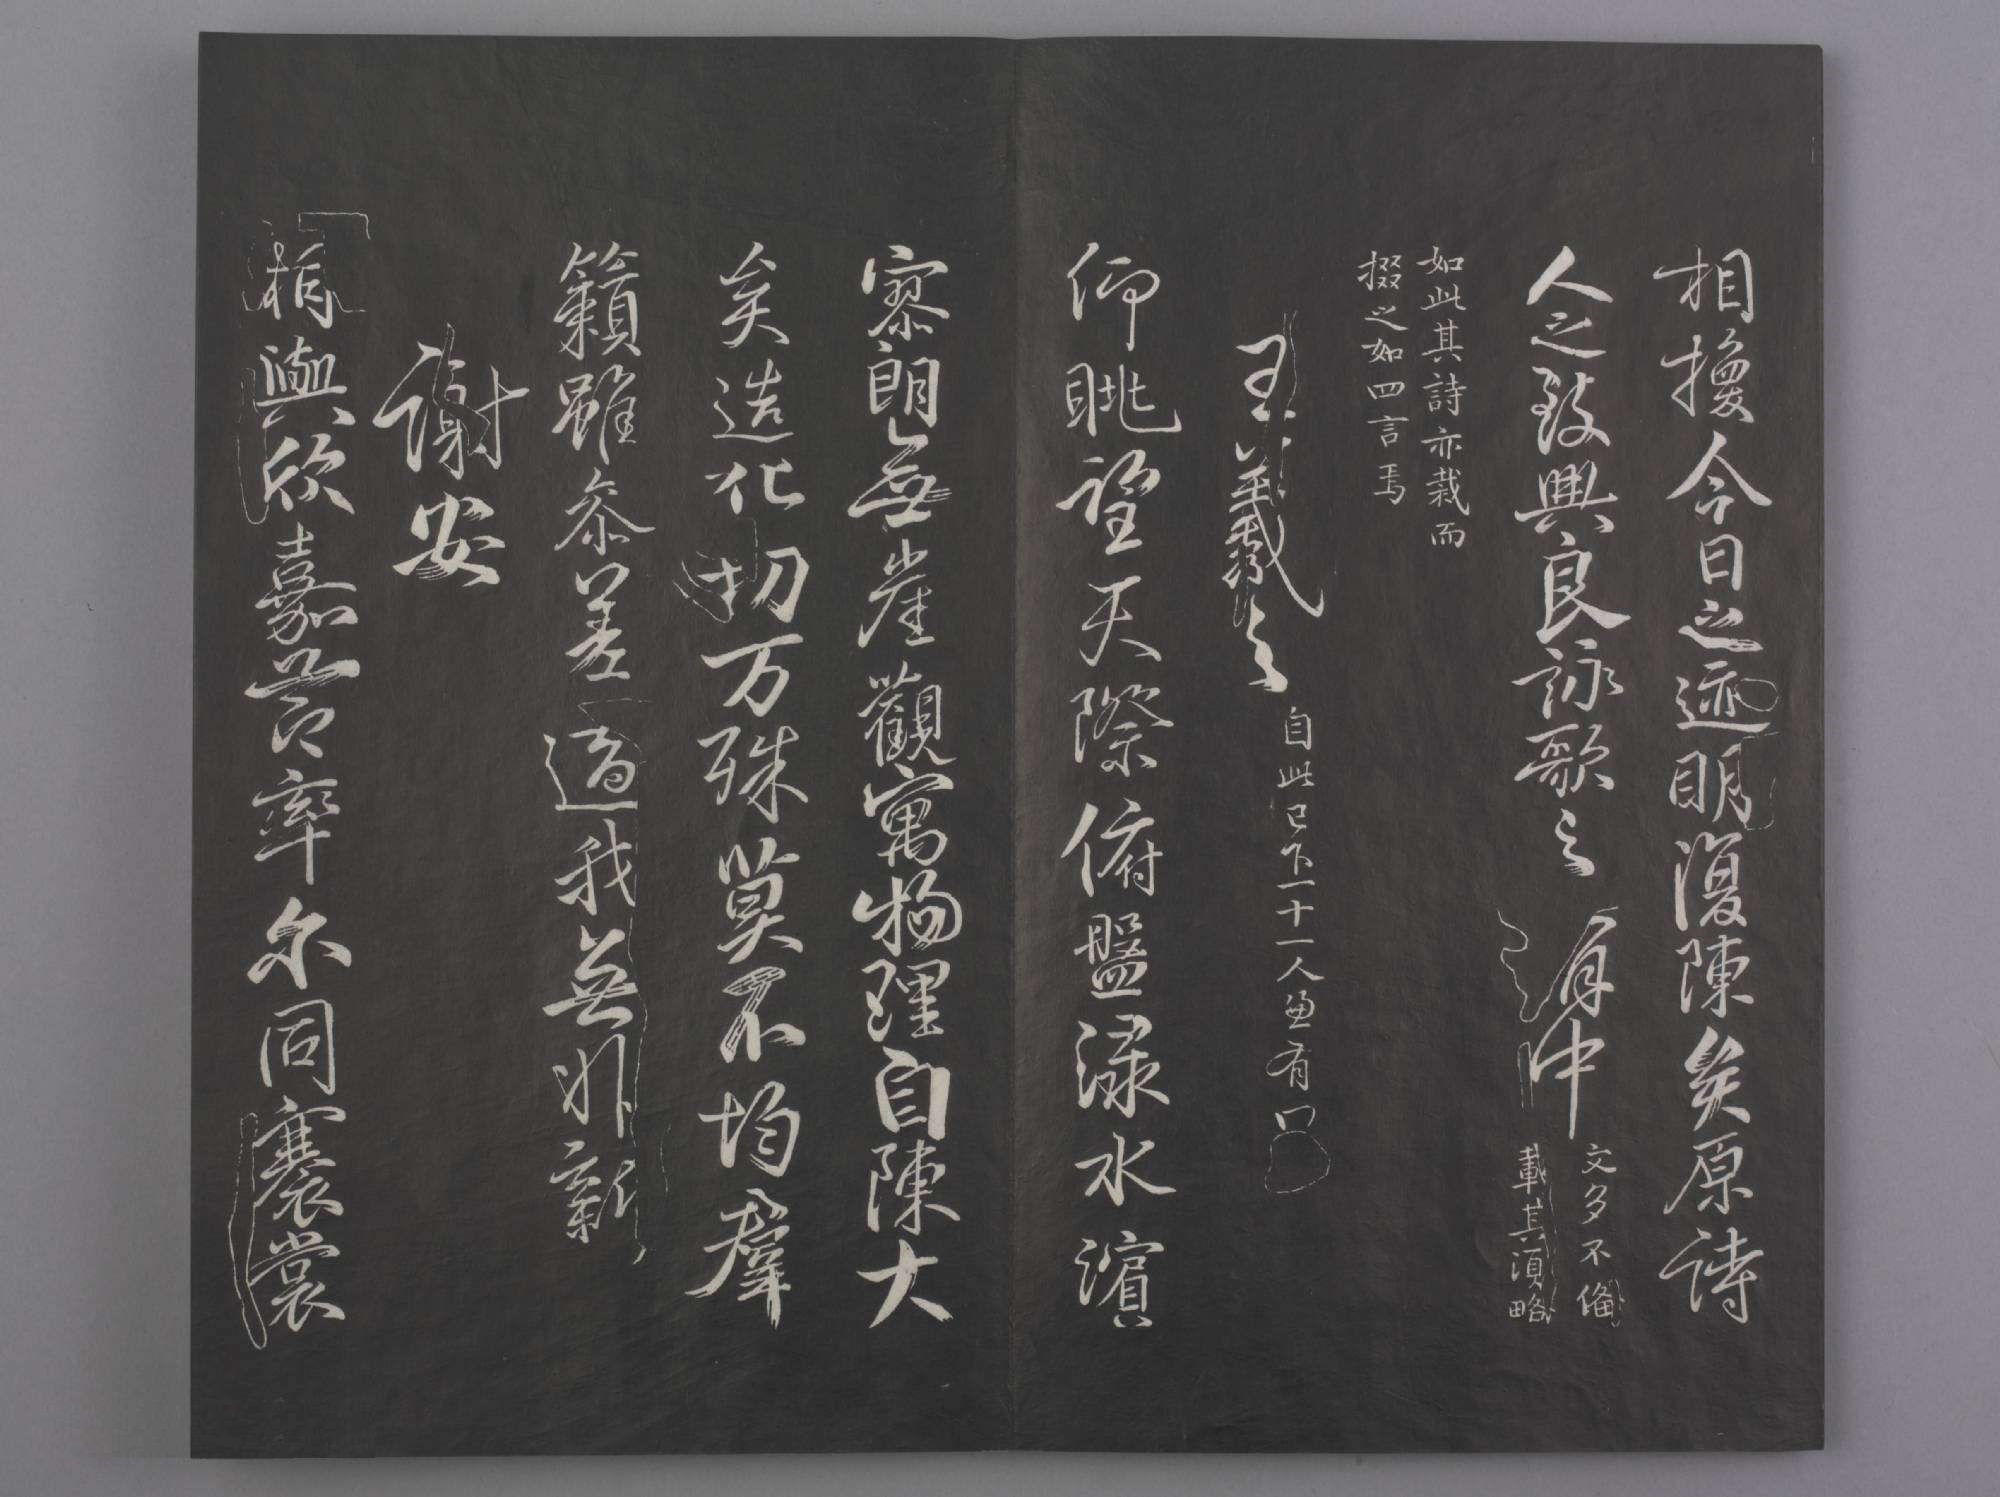 相揆今日之迹明復陳矣原詩
人之致興良詠歌之有由
文多不備
載其須略
如此其詩亦裁而
掇之如四言焉
王羲之
自此已下十一人並有
仰眺望天際俯盤淥水濱
寥朗無崖觀寓物理自陳大
矣造化功万殊莫不均群
籟雖参差適我無非新
謝安
相與欣嘉節率尔同褰裳